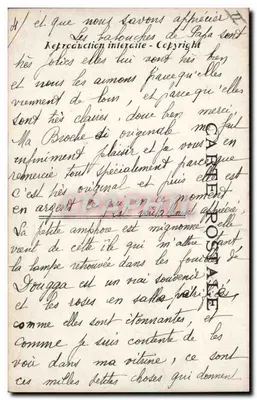 4/ et que nous savons apprécier 11
Les babouches de Papa sont
Reproduction interdite - Copyright
très jolies elles lui vont très bien
et nous les aimons parce qu'elles
viennent de loin, et parce qu'elles
sont très claires, donc bien merci,
Ma Broche si originale me fait
infiniment plaisir et je vous en
remercie tout spécialement parce que
c'est très original et puis elle est
en argent moment
La petite amphore est mignonne elle
vient de cette île qui
la lampe retrouvée dans les fouilles de
Dougga est un vrai souvenir
et les roses en sable
comme elles sont étonnantes, et
comme je suis contente de les
voir dans ma vitrine, ce sont
ces milles petites choses qui donnent
CARTE POSTALE